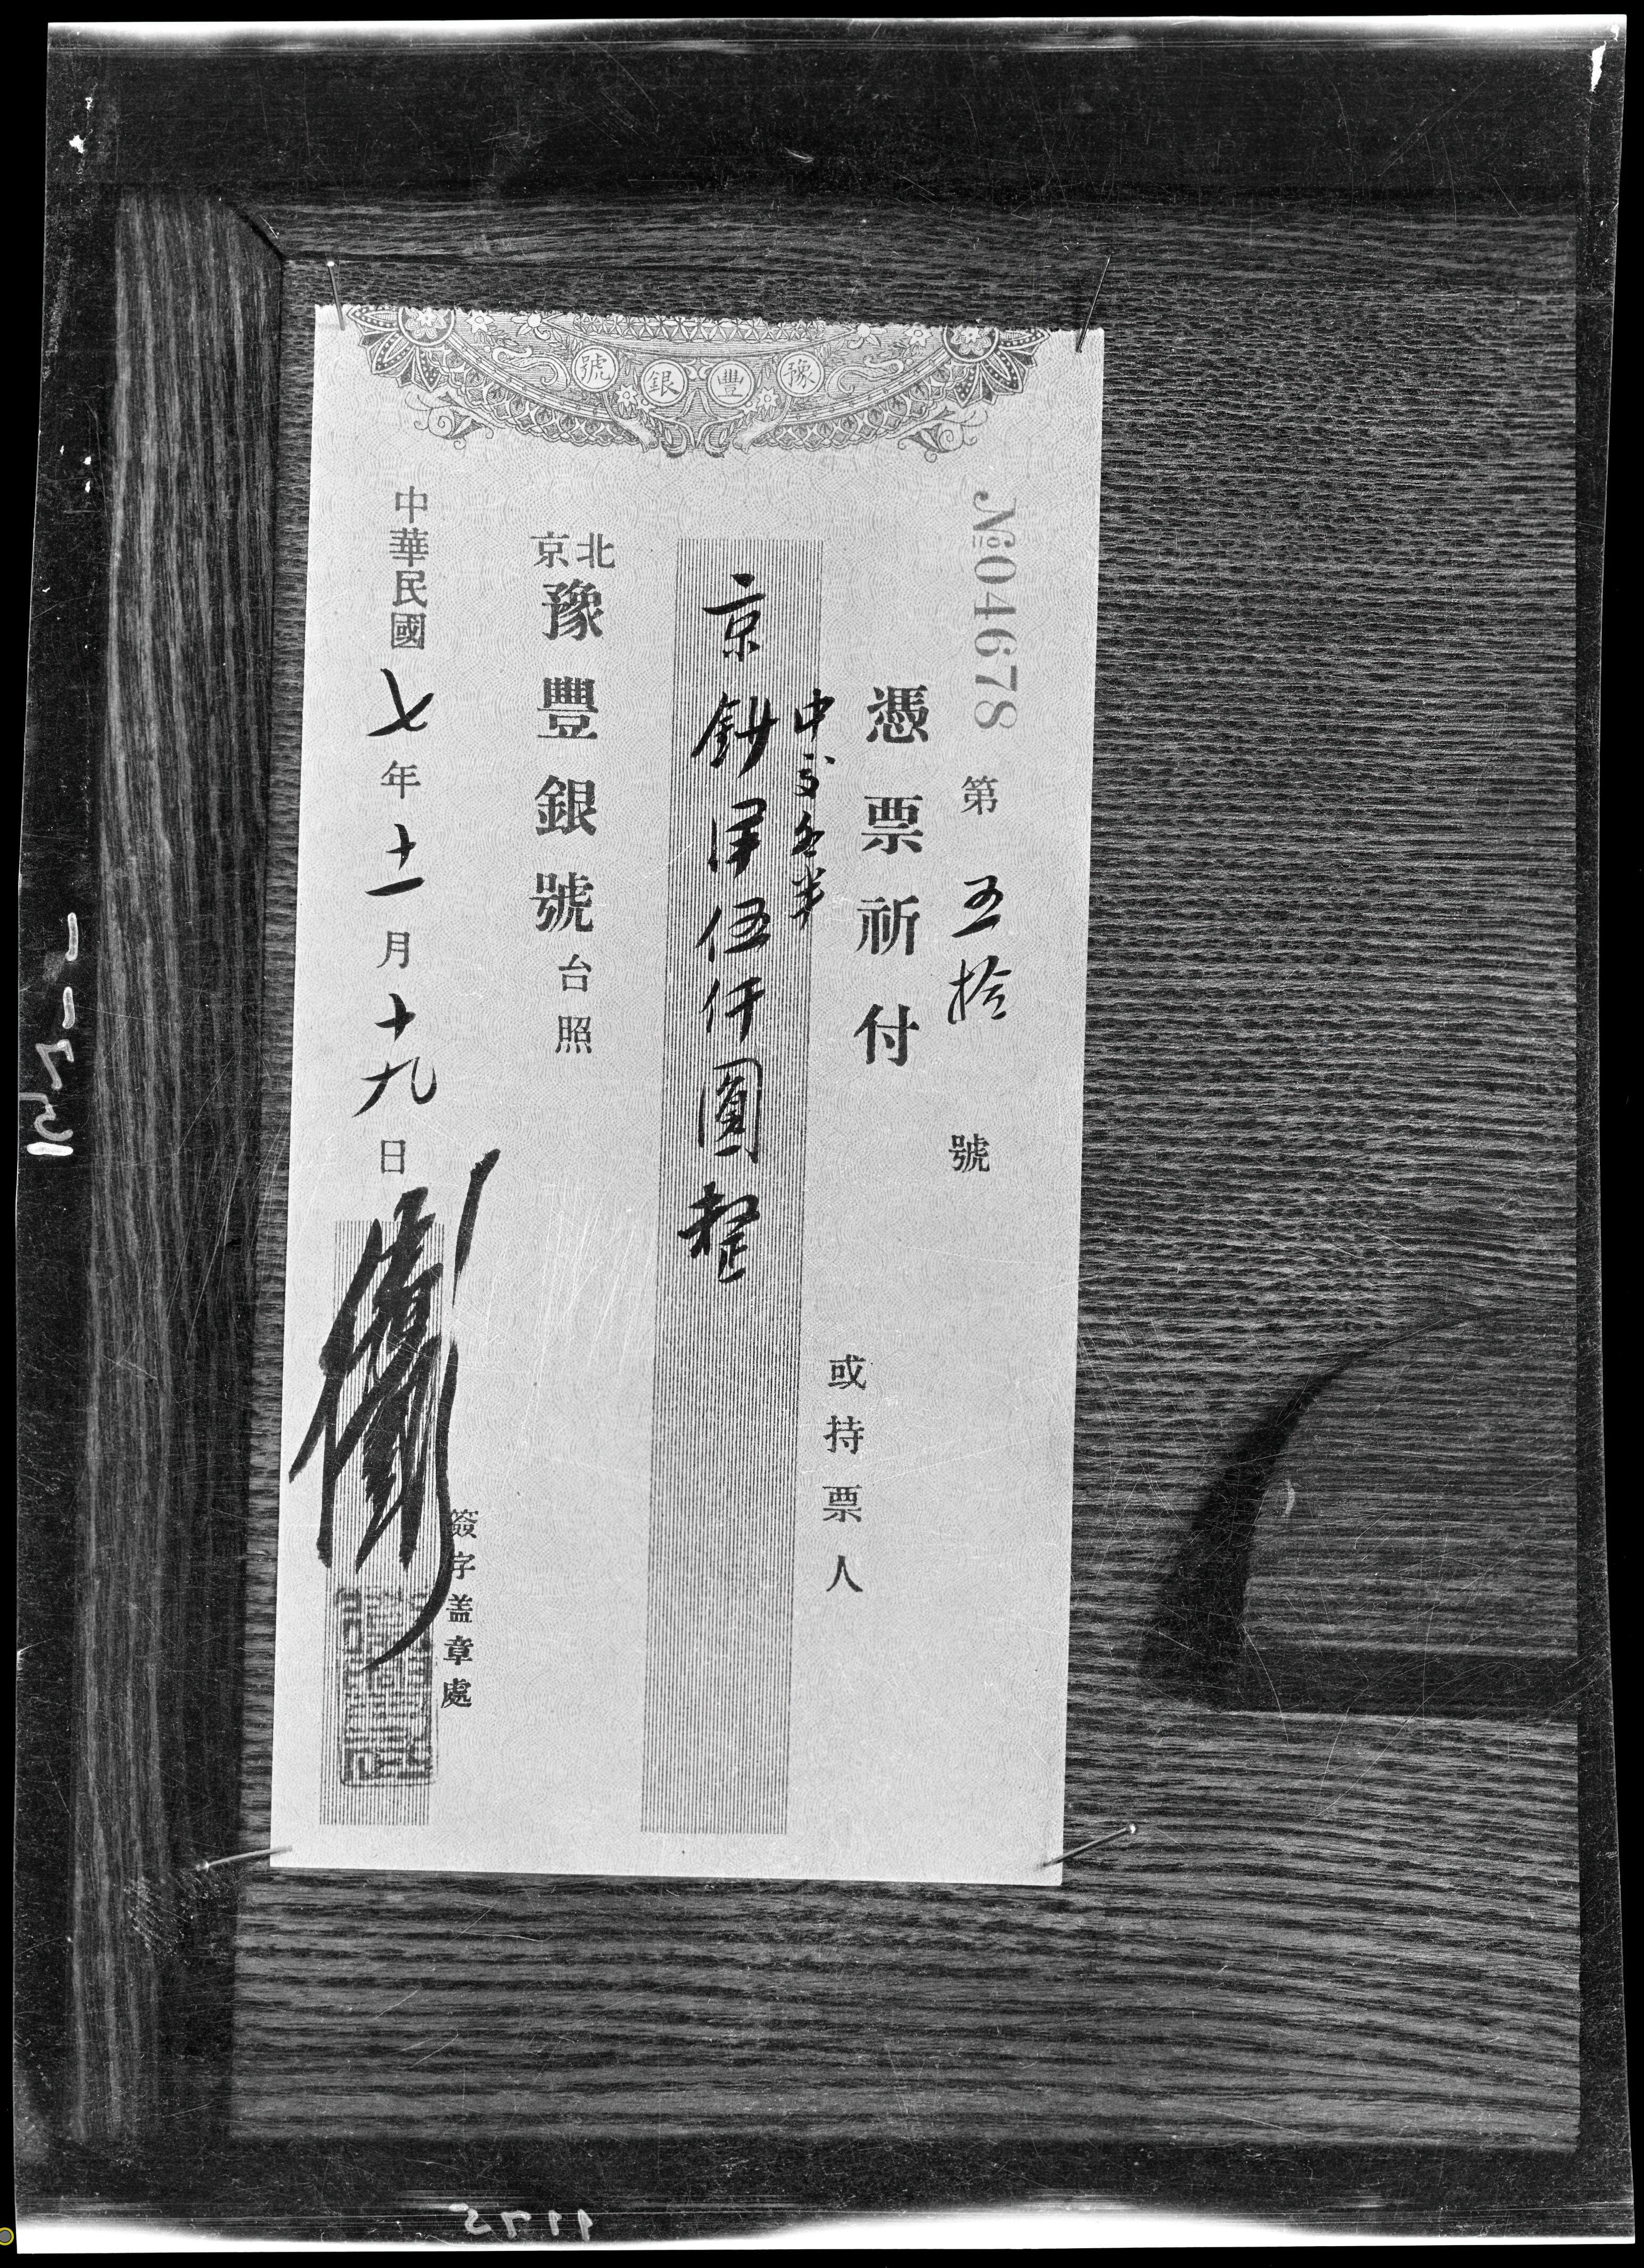 豫豐銀號
№04678
第五拾號
憑票祈付
或持票人
中交各半
京鈔洋伍仟圓整
北京豫豐銀號台照
中華民國七年十一月十九日
簽字盖章處
1175